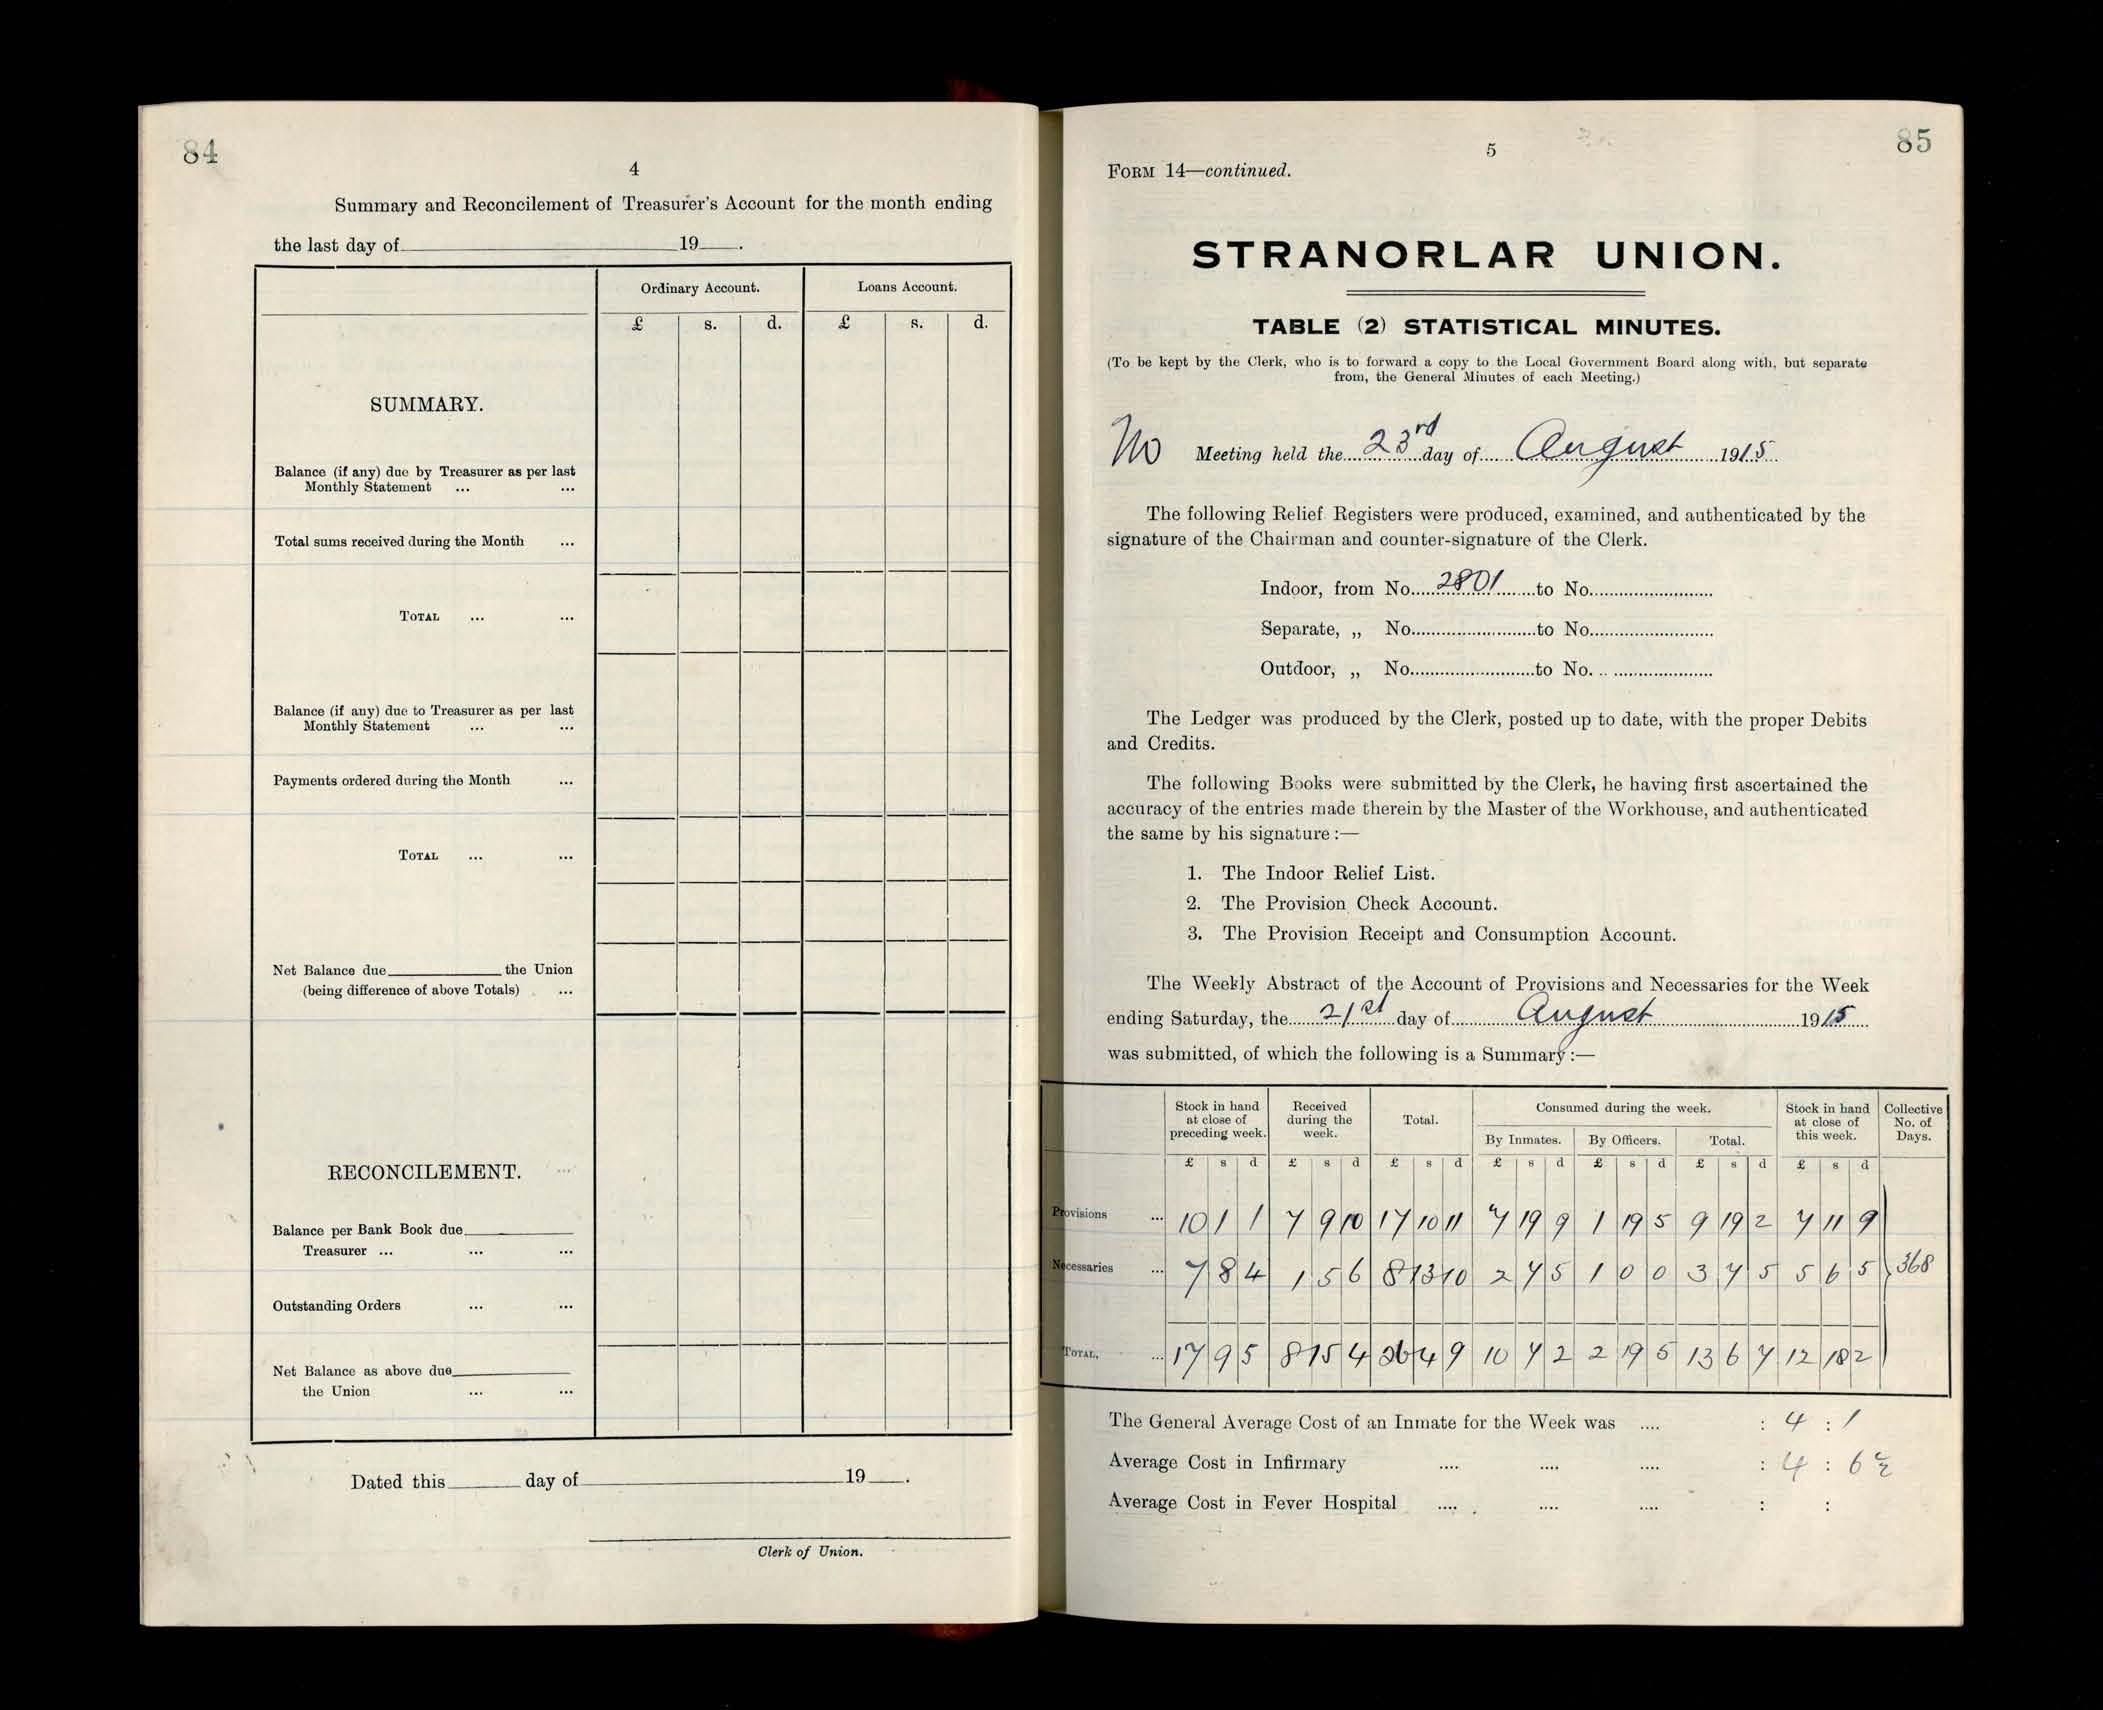 84
4
Summary and Reconcilement of Treasurer's Account for the month ending
the last day of 19 .
Ordinary Account. Loans Account.
£ s. d. £ s. d.
SUMMARY.
Balance (if any) due by Treasurer as per last
Monthly Statement ... ...
Total sums received during the Month ...
TOTAL ... ...
Balance (if any) due to Treasurer as per last
Monthly Statement ... ...
Payments ordered during the Month ...
TOTAL ... ...
Net Balance due the Union
(being difference of above Totals) ...
RECONCILEMENT.
Balance per Bank Book due
Treasurer ... ... ...
Outstanding Orders ... ...
Net Balance as above due
the Union ... ...
Dated this day of 19 .
Clerk of Union.
85
5
FORM 14—continued.
STRANORLAR UNION.
TABLE (2) STATISTICAL MINUTES.
(To be kept by the Clerk, who is to forward a copy to the Local Government Board along with, but separate
from, the General Minutes of each Meeting.)
No Meeting held the 23rd day of August 1915
The following Relief Registers were produced, examined, and authenticated by the
signature of the Chairman and counter-signature of the Clerk.
Indoor, from No. 2801 to No.
Separate, „ No. to No.
Outdoor, „ No. to No.
The Ledger was produced by the Clerk, posted up to date, with the proper Debits
and Credits.
The following Books were submitted by the Clerk, he having first ascertained the
accuracy of the entries made therein by the Master of the Workhouse, and authenticated
the same by his signature :—
1. The Indoor Relief List.
2. The Provision Check Account.
3. The Provision Receipt and Consumption Account.
The Weekly Abstract of the Account of Provisions and Necessaries for the Week
ending Saturday, the 21st day of August 1915
was submitted, of which the following is a Summary :—
Stock in hand at close of preceding week. Received during the week. Total. Consumed during the week. Stock in hand at close of this week. Collective No. of Days.
By Inmates. By Officers. Total.
£ s d £ s d £ s d £ s d £ s d £ s d £ s d
Provisions ... 10 1 1 7 9 10 17 10 11 7 19 9 1 19 5 9 19 2 7 11 9
Necessaries ... 7 8 4 1 5 6 8 13 10 2 7 5 1 0 0 3 7 5 5 6 5 368
TOTAL, ... 17 9 5 8 15 4 26 4 9 10 7 2 2 19 5 13 6 7 12 18 2
The General Average Cost of an Inmate for the Week was .... : 4 : 1
Average Cost in Infirmary .... .... .... : 4 : 6½
Average Cost in Fever Hospital .... .... .... : :